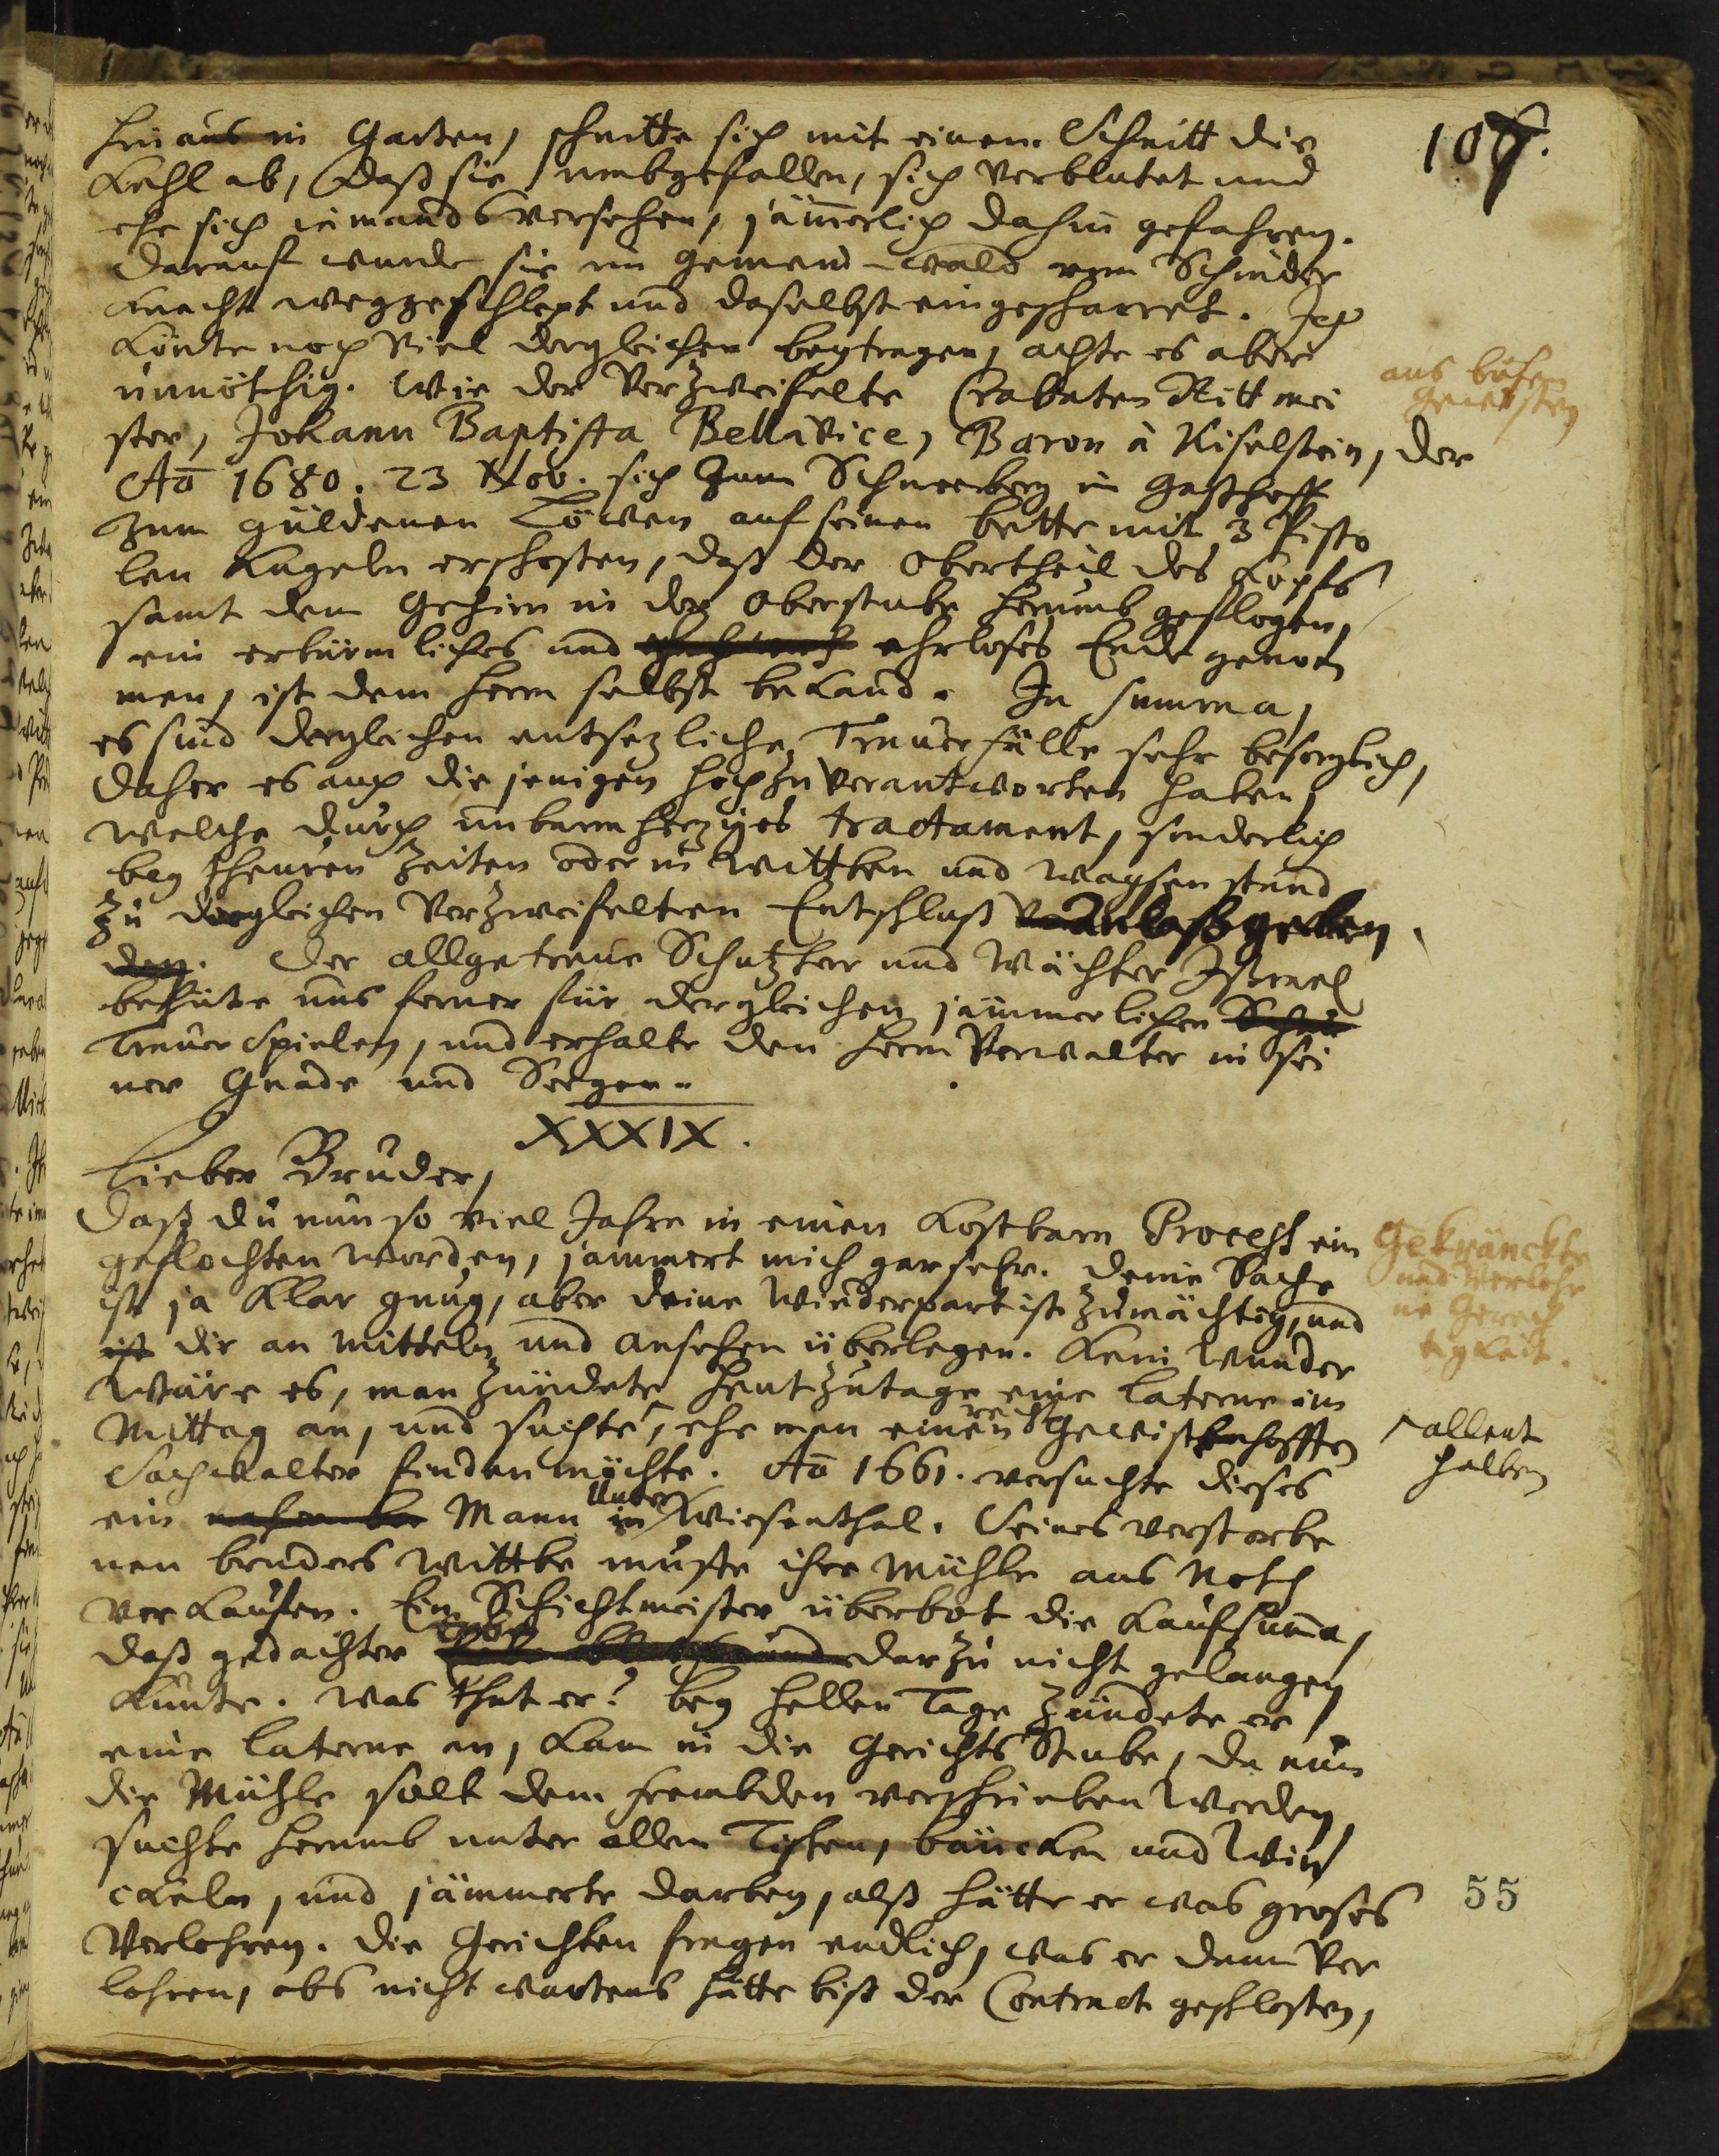 107.
hinaus in Garten, schnitte sich mit einem Schnitt die
Kehl ab, daß sie umbgefallen, sich verblutet und
ehe sichs iemands versehen, jämerlich dahin gefahren.
Darauf wurde sie im gemeind-wald vom Schinder
Knecht weggeschlept und daselbst eingescharret. Ich
könte noch viel dergleichen beytragen, achte es aber
unnöthig. Wie der verzweifelte Crabaten Rittmei
aus bösen
gewißen
ster, Johann Baptista Bellavice, Baron à Kiselstein, der
Aō 1680. 23 Nov. sich zum Schneeberg im Gasthoff
zum güldenen Löwen auf seinen bette mit 3 Pisto
len Kugeln erschoßen, daß der Obertheil des Kopfs
samt dem Gehirn in der Oberstube herumb geflogen,
ein erbärmliches und ehrloses Ende genom
men, ist dem Herrn selbst bekand. In summa,
es sind dergleichen entsezliche Trauerfälle sehr besorglich,
daher es auch die jenigen hoch zu verantworten haben,
welche durch unbarmherziges tractament, sonderlich
bey theuren Zeiten oder in Wittben und Waysenstand
zu dergleichen verzweifelten Entschluß Anlaß geben
den. Der allgetreue Schutzherr und Wächter Israel
behüte uns ferner für dergleichen jämmerlichen
Trauer Spielen, und erhalte den Herrn Verwalter in sei
ner Gnade und Seegen.
XXXIX.
Lieber Bruder,
Daß du nun so viel Jahre in einen kostbarn Proceß ein
Gekränckte
und verlohr
ne Gerech
tigkeit.
geflochten worden, jammert mich gar sehr. Deine Sache
ist ja klar gnug, aber deine Wiederpart ist zu mächtig, und
ist dir an Mitteln und Ansehen überlegen. Kein Wunder
wäre es, man zündete heut zu tage eine laterne im
Mittag an, und suchte, ehe man einen recht Gewißenhafften
allent
halben
Sachwalter finden möchte. Aō 1661. versuchte dieses
ein Mann in Unter Wiesenthal. Seines verstorbe
nen bruders Wittbe muste ihre Mühle aus Noth
verkaufen. Ein Schichtmeister überbot die Kaufsuma,
daß gedachter darzu nicht gelangen
kunte. Was thut er? bey hellen Tage zündete er
eine laterne an, kam in die Gerichts Stube, da nun
die Mühle solt dem frembden verschrieben werden,
suchte herumb unter allen Tischen, bäncken und Win
ckeln, und jämmerte darbey, alß hätte er was großes
verlohren. Die Gerichten fragen endlich, was er denn ver
lohren, obs nicht wartens hätte biß der Contract geschloßen,
55